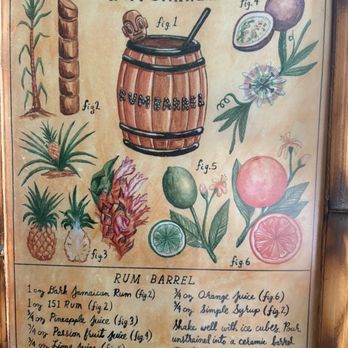 fig.1
fig.4
RUM BARREL
fig2
fig.5
fig.3
fig.6
RUM BARREL
1 oz Dark Jamaican Rum (fig.2)
1 oz 151 Rum (fig.2)
3/4 oz Pineapple Juice (fig.3)
3/4 oz Passion fruit Juice (fig.4)
3/4 oz Lime Juice
3/4 oz Orange Juice (fig.6)
3/4 oz Simple Syrup (fig.2)
Shake well with ice cubes. Pour
unstrained into a ceramic barrel